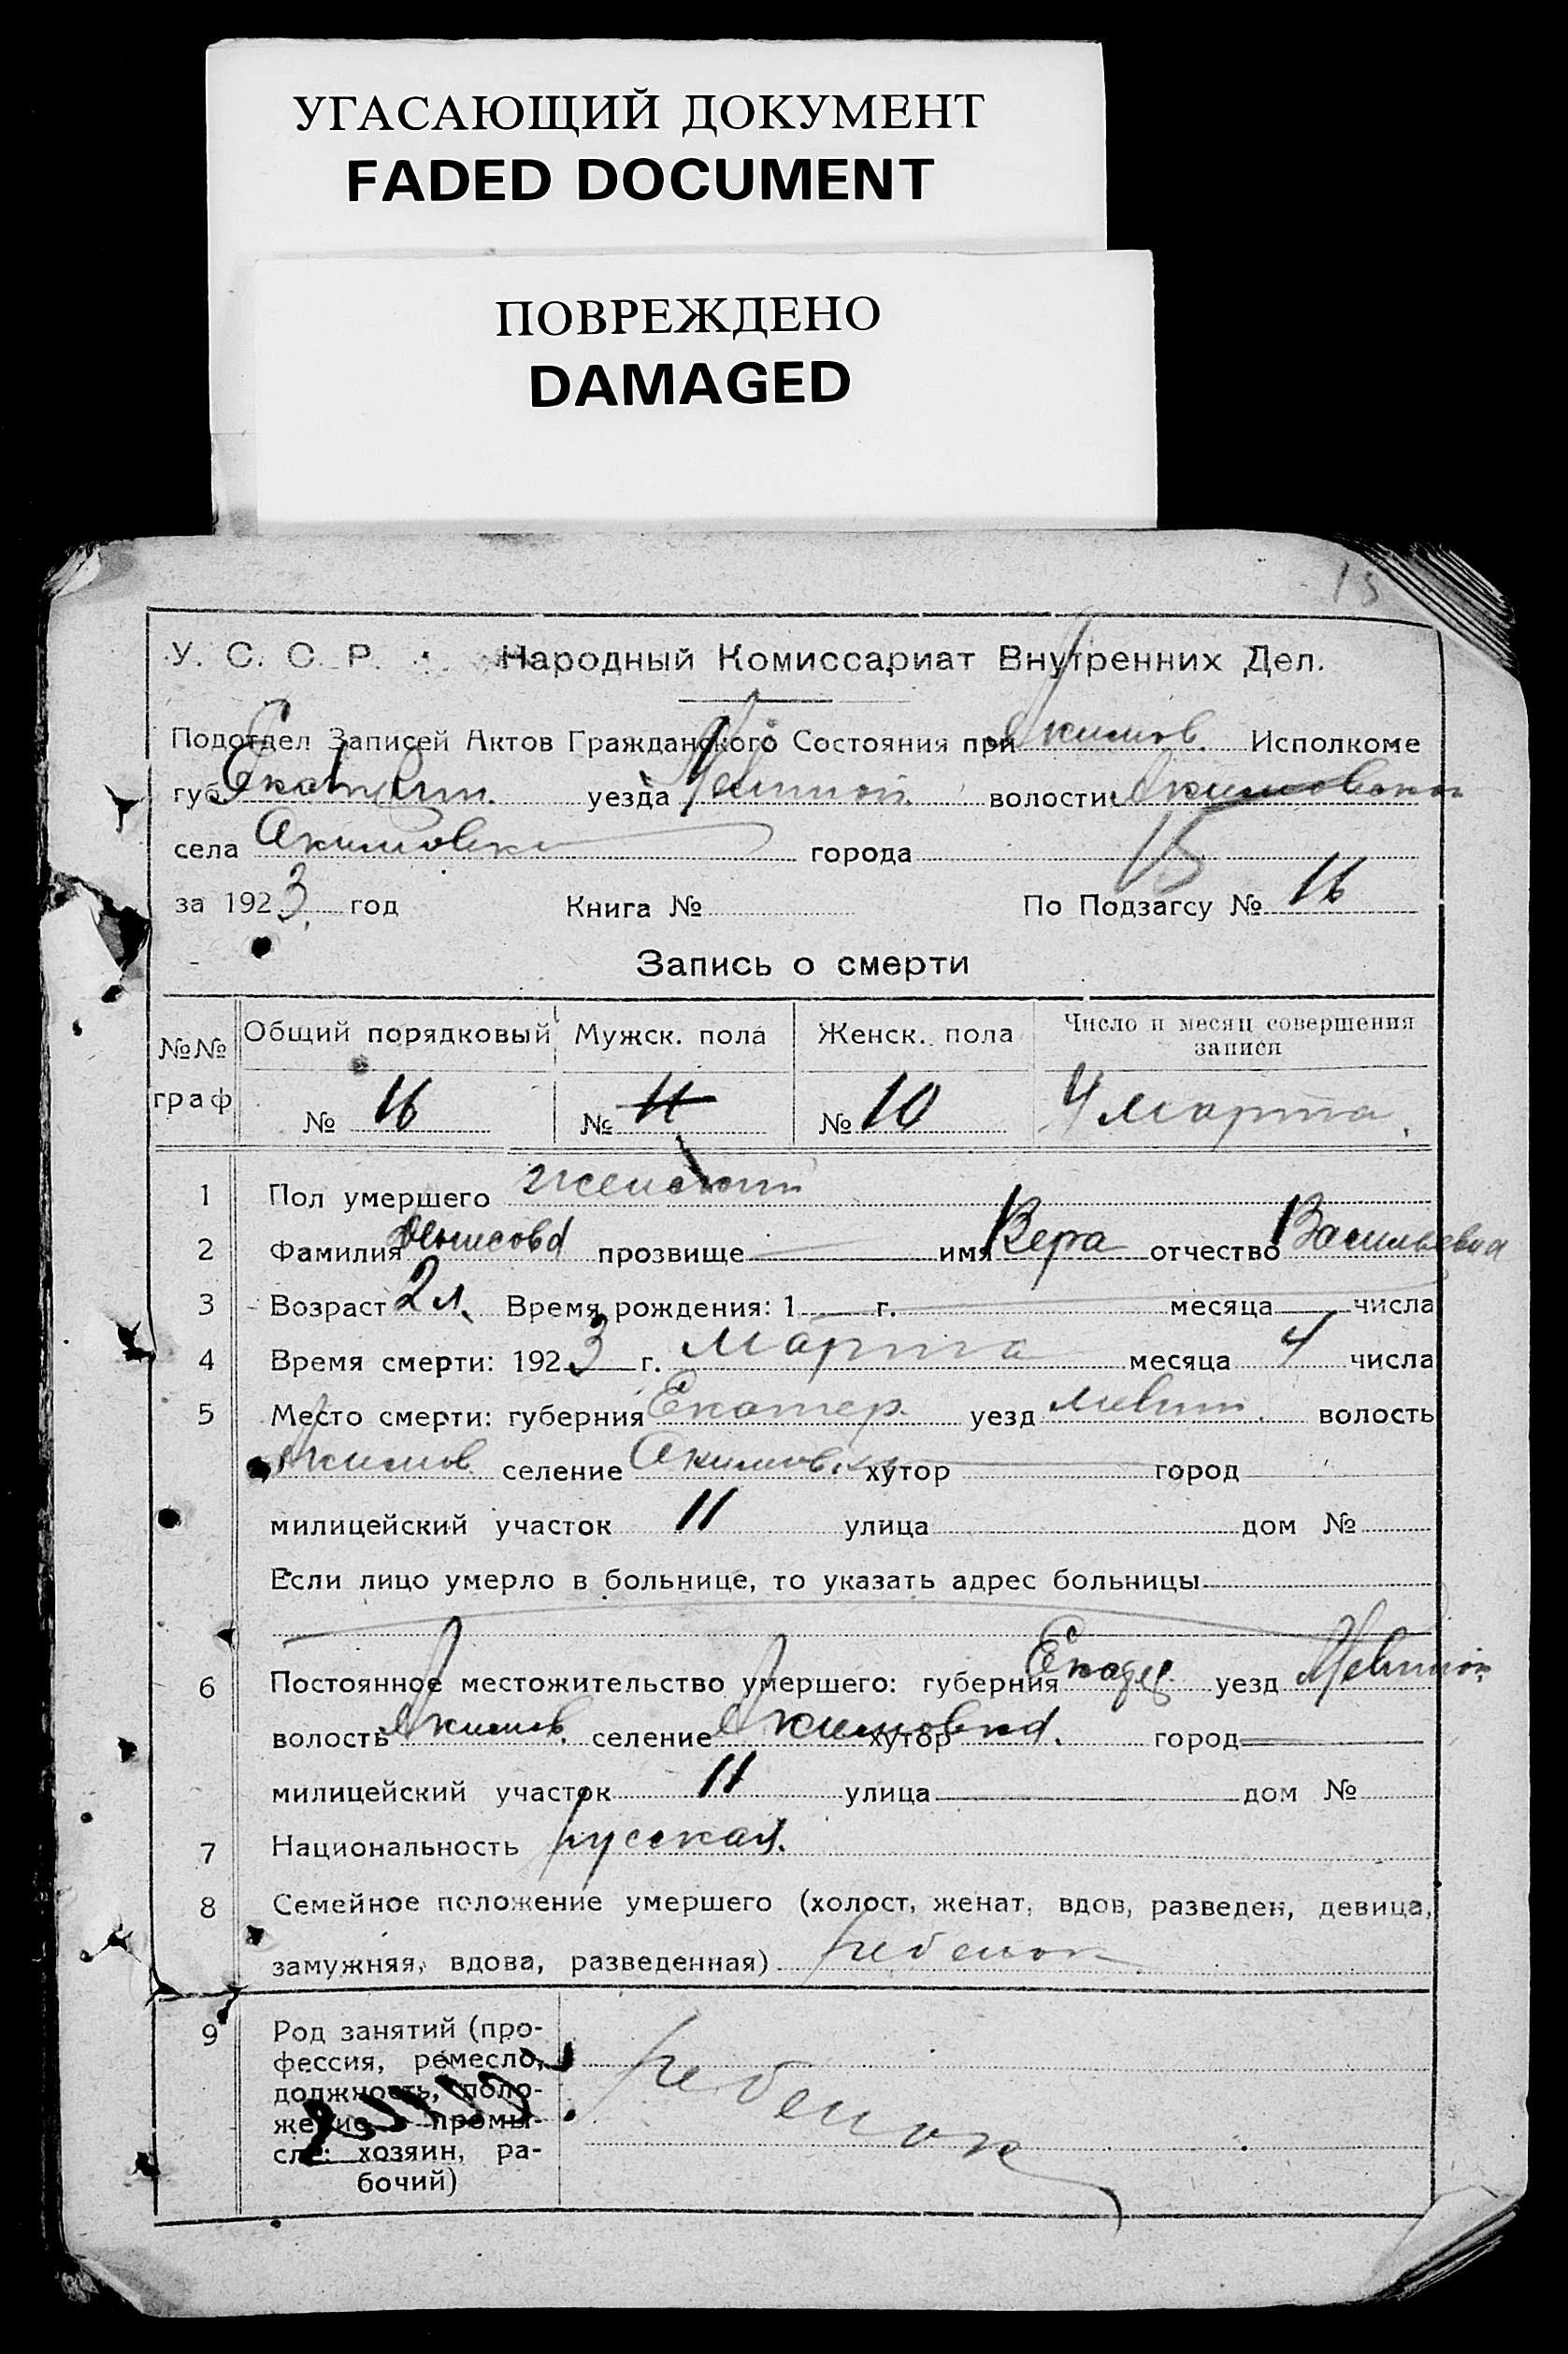 УГАСАЮЩИЙ ДОКУМЕНТ
FADED DOCUMENT
ПОВРЕЖДЕНО
DAMAGED
15
У. С. С. Р. Народный Комиссариат Внутренних Дел.
Подотдел Записей Актов Гражданского Состояния при Акимов. Исполкоме
губ. Екатерин. уезда Мелитоп. волости Акимовской
села Акимовка города
15
за 1923 год Книга № По Подзагсу № 16
Запись о смерти
№№ граф Общий порядковый Мужск. пола Женск. пола Число и месяц совершения записи
№ 16 № 11 № 10 4 марта.
1 Пол умершего женский
2 Фамилия Денисова прозвище имя Вера отчество Васильевна
3 Возраст 2 л. Время рождения: 1 г. месяца числа
4 Время смерти: 1923 г. Марта месяца 4 числа
5 Место смерти: губерния Екатер. уезд Мелит. волость
Акимов. селение Акимовка хутор город
милицейский участок 11 улица дом №
Если лицо умерло в больнице, то указать адрес больницы
6 Постоянное местожительство умершего: губерния Екатер. уезд Мелитоп.
волость Акимов. селение Акимовка. хутор город
милицейский участок 11 улица дом №
7 Национальность русская.
8 Семейное положение умершего (холост, женат, вдов, разведен, девица,
замужняя, вдова, разведенная) ребенок
9 Род занятий (про-
фессия, ремесло,
должность, поло-
жение в промы-
сле: хозяин, ра-
бочий)
ребенок